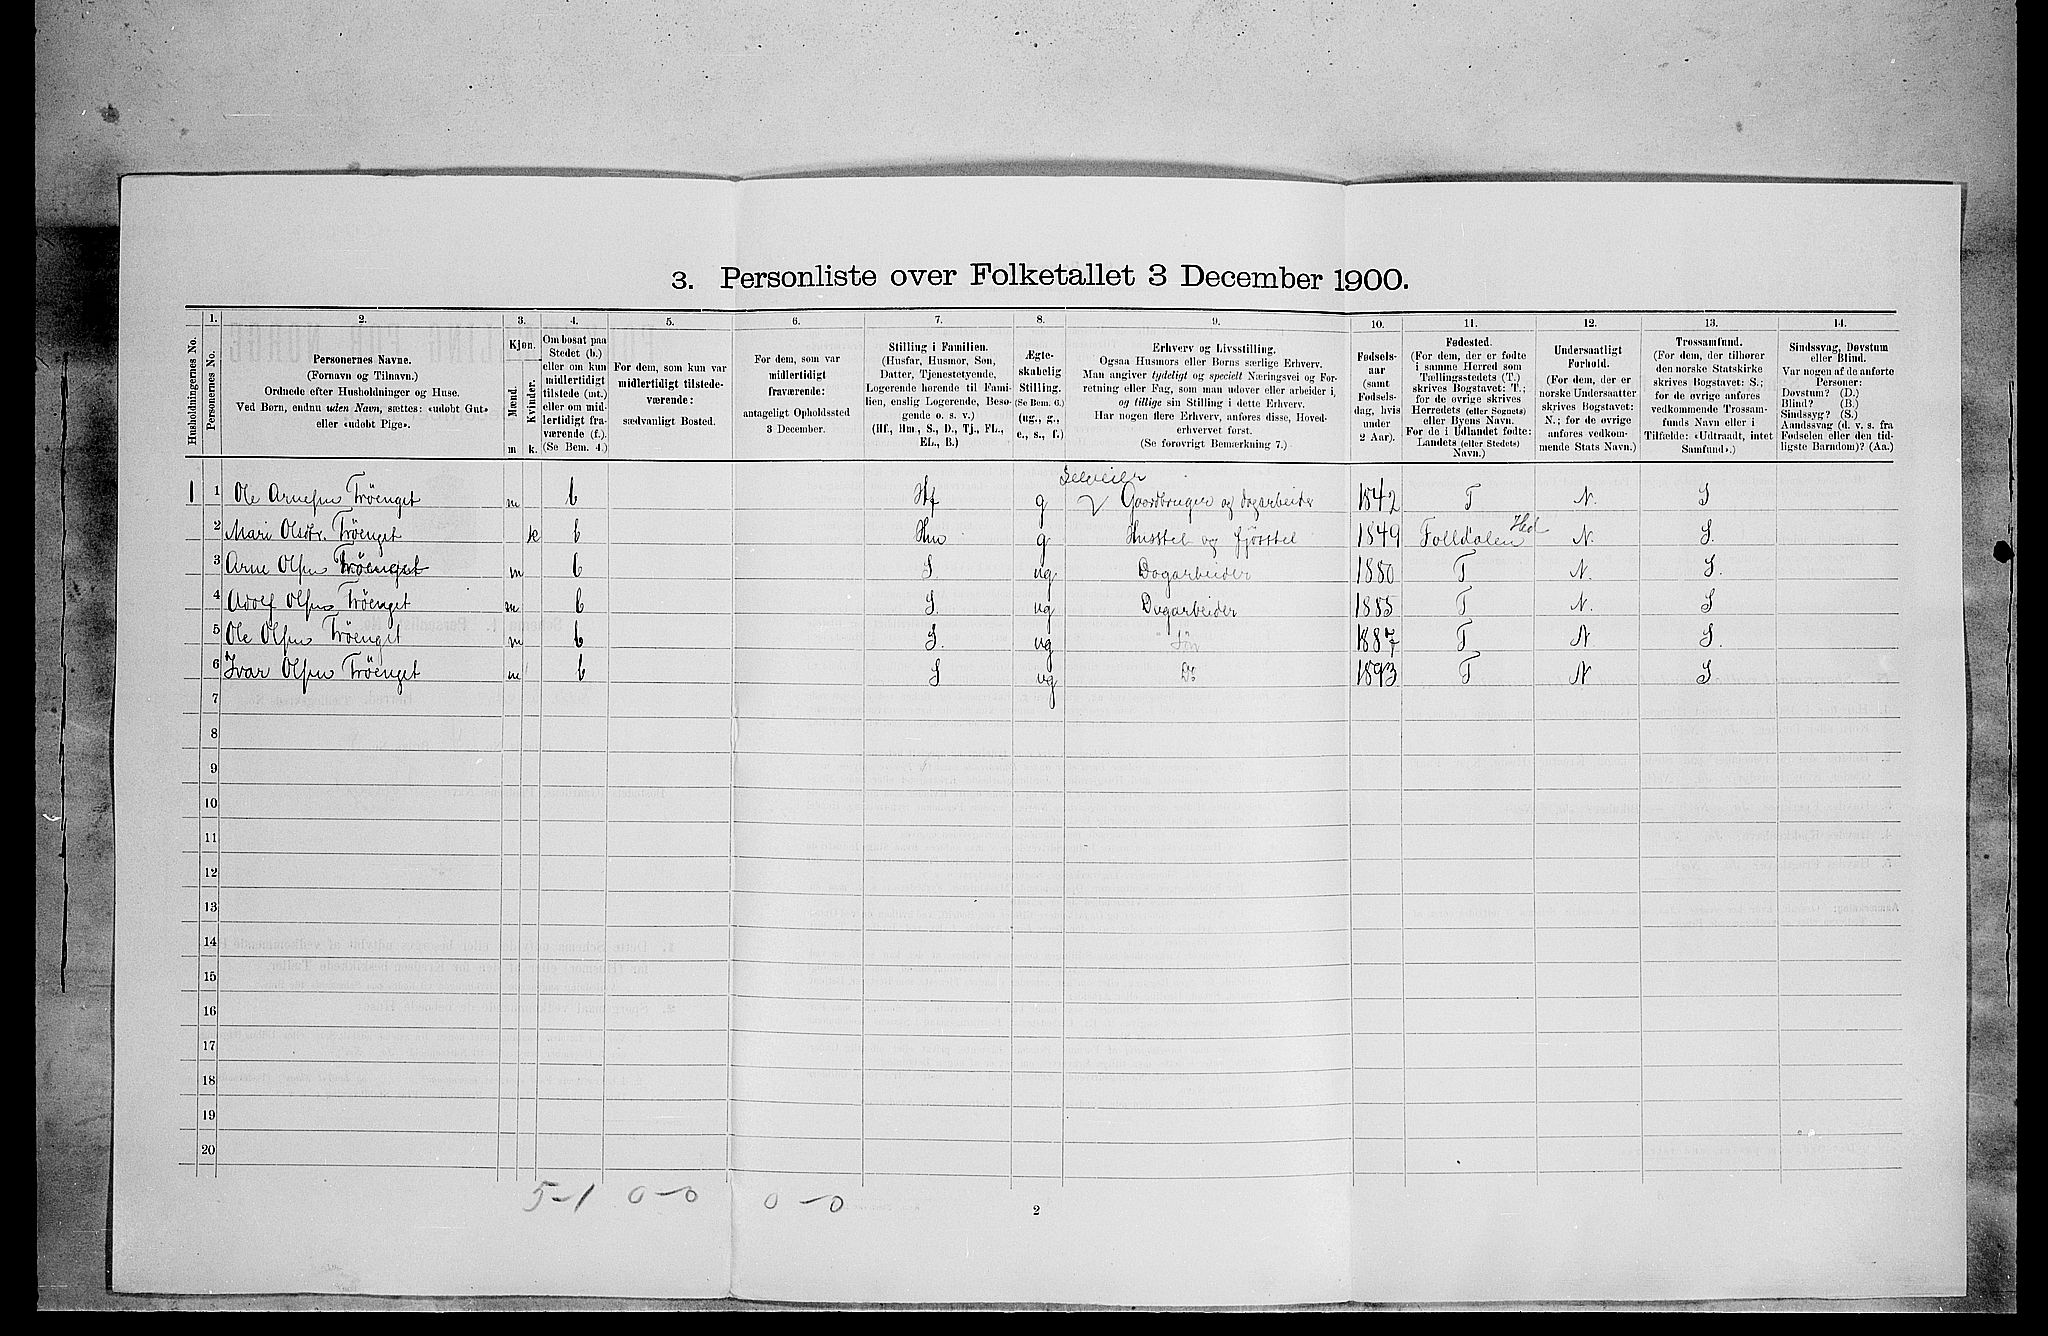 3. Personliste over Folketallet 3 December 1900.
Husholdningernes No.
1.
Personernes No.
2.
Personernes Navne.
(Fornavn og Tilnavn.)
Ordnede efter Husholdninger og Huse.
Ved Børn, endnu uden Navn, sættes: «udøbt Gut»
eller «udøbt Pige».
3.
Kjøn.
Mænd.
Kvinder.
m
k.
4.
Om bosat paa
Stedet (b.)
eller om kun
midlertidigt
tilstede (mt.)
eller om mid-
lertidigt fra-
værende (f.).
(Se Bem. 4.)
5.
For dem, som kun var
midlertidigt tilstede-
værende:
sædvanligt Bosted.
6.
For dem, som var
midlertidigt
fraværende:
antageligt Opholdssted
3 December.
7.
Stilling i Familien.
(Husfar, Husmor, Søn,
Datter, Tjenestetyende,
Logerende hørende til Fami-
lien, enslig Logerende, Besø-
gende o. s. v.)
(Hf., Hm., S., D., Tj., FL.,
EL., B.)
8.
Ægte-
skabelig
Stilling.
(Se Bem. 6.)
(ug., g.,
e., s., f.)
9.
Erhverv og Livsstilling.
Ogsaa Husmors eller Børns særlige Erhverv.
Man angiver tydeligt og specielt Næringsvei og For-
retning eller Fag, som man udøver eller arbeider i,
og tillige sin Stilling i dette Erhverv.
Har nogen flere Erhverv, anføres disse, Hoved-
erhvervet først.
(Se forøvrigt Bemærkning 7.)
10.
Fødsels-
aar
(samt
Fødsels-
dag, hvis
under
2 Aar).
11.
Fødested.
(For dem, der er fødte
i samme Herred som
Tællingsstedets (T.)
skrives Bogstavet: T.;
for de øvrige skrives
Herredets (eller Sognets)
eller Byens Navn.
For de i Udlandet fødte:
Landets (eller Stedets)
Navn.)
12.
Undersaatligt
Forhold.
(For dem, der er
norske Undersaatter
skrives Bogstavet:
N.; for de øvrige
anføres vedkom-
mende Stats Navn.)
13.
Trossamfund.
(For dem, der tilhører
den norske Statskirke
skrives Bogstavet: S.;
for de øvrige anføres
vedkommende Trossam-
funds Navn eller i
Tilfælde: «Udtraadt, intet
Samfund».)
14.
Sindssvag, Døvstum
eller Blind.
Var nogen af de anførte
Personer:
Døvstum? (D.)
Blind? (B.)
Sindssyg? (S.)
Aandssvag (d. v. s. fra
Fødselen eller den tid-
ligste Barndom)? (Aa.)
Selveier
1 1 Ole Arnesen Trøenget m b Hf g Gaardbruger og dagarbeider 1842 T N S
2 Mari Olsdtr. Trøenget k b Hm g Husstel og fjøsstel 1849 Folldalen Hed N. S.
3 Arne Olsen Trøenget m b S. ug Dagarbeider 1880 T N. S.
4 Adolf Olsen Trøenget m b S. ug Dagarbeider 1885 T N. S
5 Ole Olsen Trøenget m b S. ug Søn 1887 T N S.
6 Ivar Olsen Trøenget m b S ug Do 1893 T N S
7
8
9
10
11
12
13
14
15
16
17
18
19
20
5-1 0-0 0-0
2